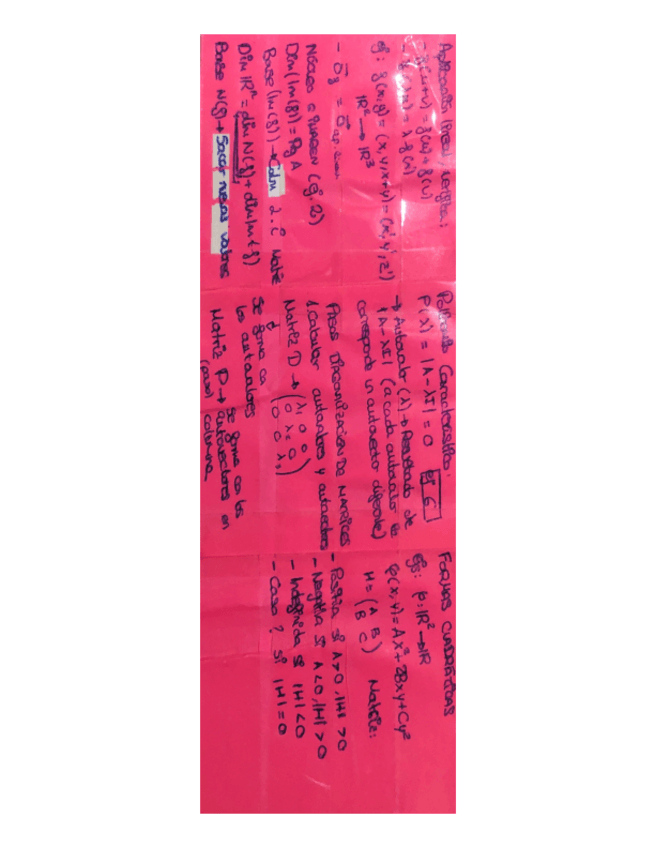 Aplicación lineal verifica:
- f(u+v) = f(u) + f(v)
- f(λu) = λ f(u)
ej: f(x,y) = (x, y, x+y) = (x', y', z')
IR² → IR³
- O⃗f = O⃗
Núcleo e imagen (ej. 2)
Dim(Im(f)) = Rg A
Base (Im(f)) → Colm
Dim IRⁿ = dim N(f) + dim Im(f)
Base N(f) → Sacar nuevas valores
Polinomio Característico:
P(λ) = |A - λI| = 0 ej 6
→ Autovalor (λ) → Resultado de
|A - λI| (a cada autovalor le
corresponde un autovector diferente)
PASOS DIAGONALIZACIÓN DE MATRICES
1. Calcular autovalores y autovectores
Matriz D → (λ₁ 0 0
0 λ₂ 0
0 0 λ₃)
Se forma con
los autovalores
Matriz P → se forma con los
(paso) autovectores en
columna
FORMAS CUADRÁTICAS
ejs: φ: IR² → IR
φ(x,y) = Ax² + 2Bxy + Cy²
H = (A B
B C) Matriz:
- Positiva si A>0, |H| > 0
- Negativa si A<0, |H| > 0
- Indefinida si |H| < 0
- Caso ? si |H| = 0